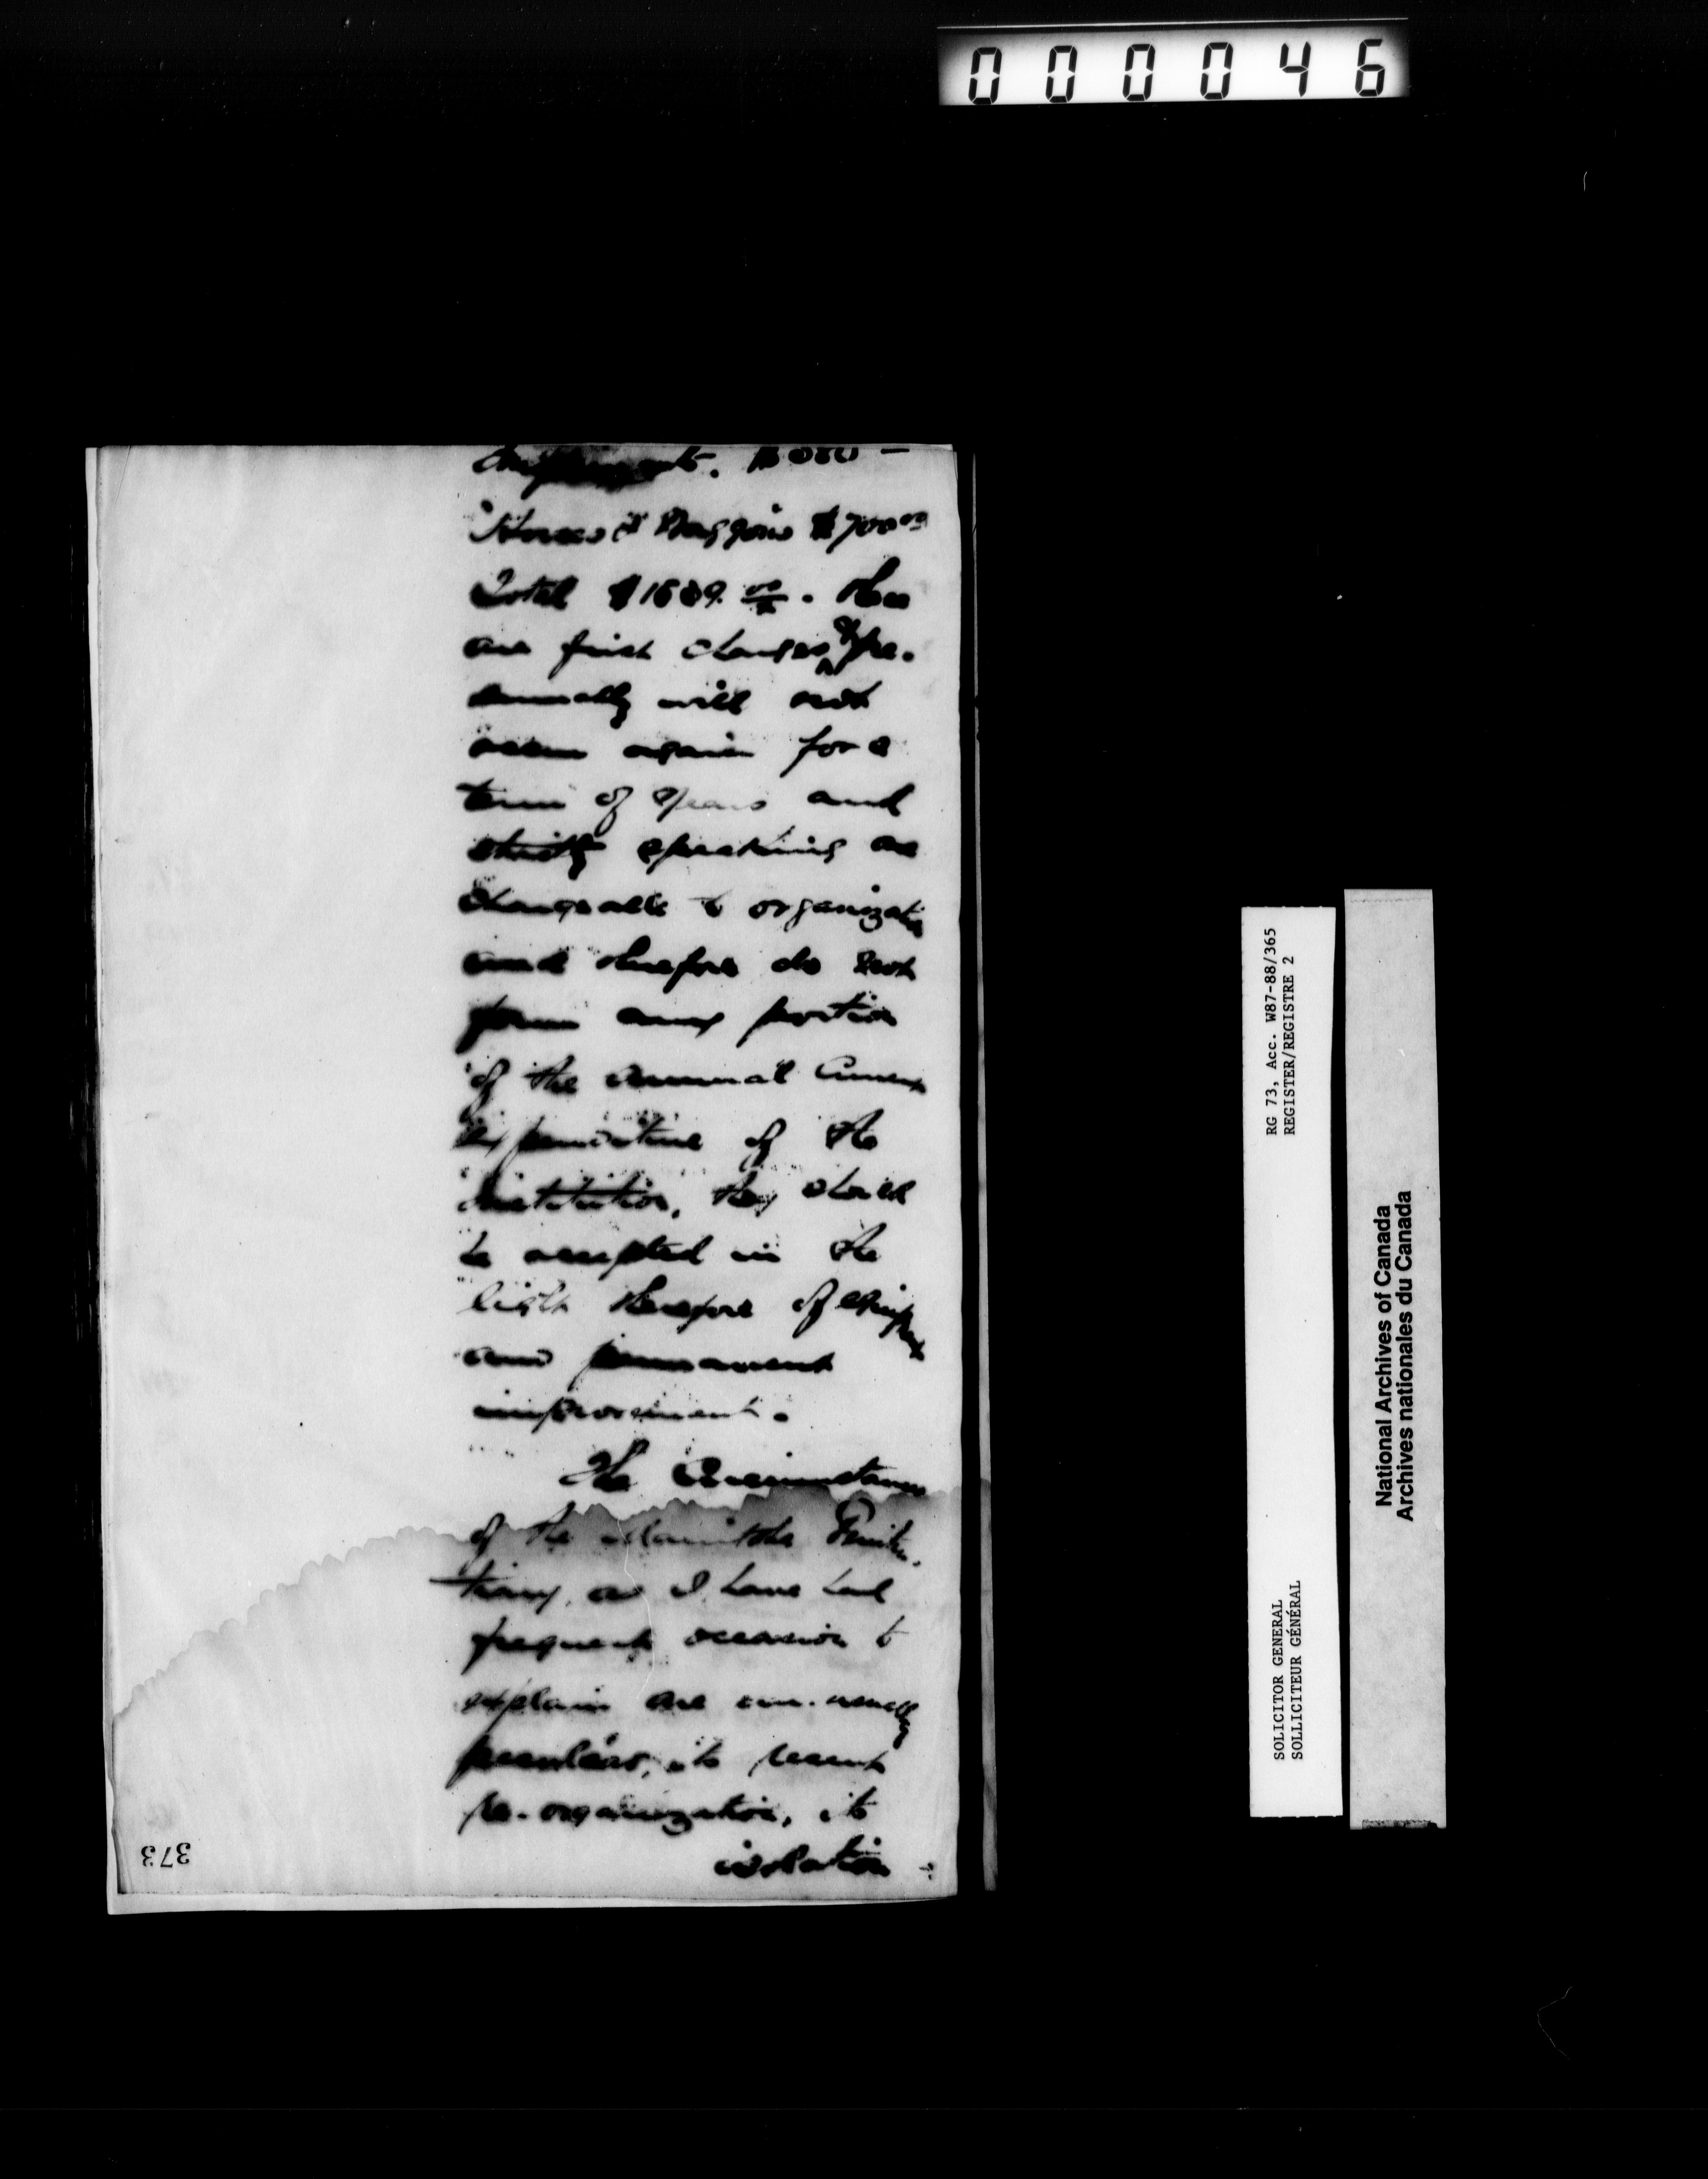 000046
Horses & Waggons $700.00
Total $1609.00. These
are first charges, & pre-
sumably will not
occur again for a
term of years and
strictly speaking are
chargeable to organization
and therefore do not
form any portion
of the annual current
expenditure of the
institution, they should
be accepted in the
light therefore of equipment
and permanent
improvement.
The Circumstances
of the Manitoba Peniten-
tiary, as I have had
frequent occasion to
explain are un-usually
peculiar, its recent
re-organization, its
isolation
373
RG 73, Acc. W87-88/365
REGISTER/REGISTRE 2
SOLICITOR GENERAL
SOLLICITEUR GÉNÉRAL
National Archives of Canada
Archives nationales du Canada